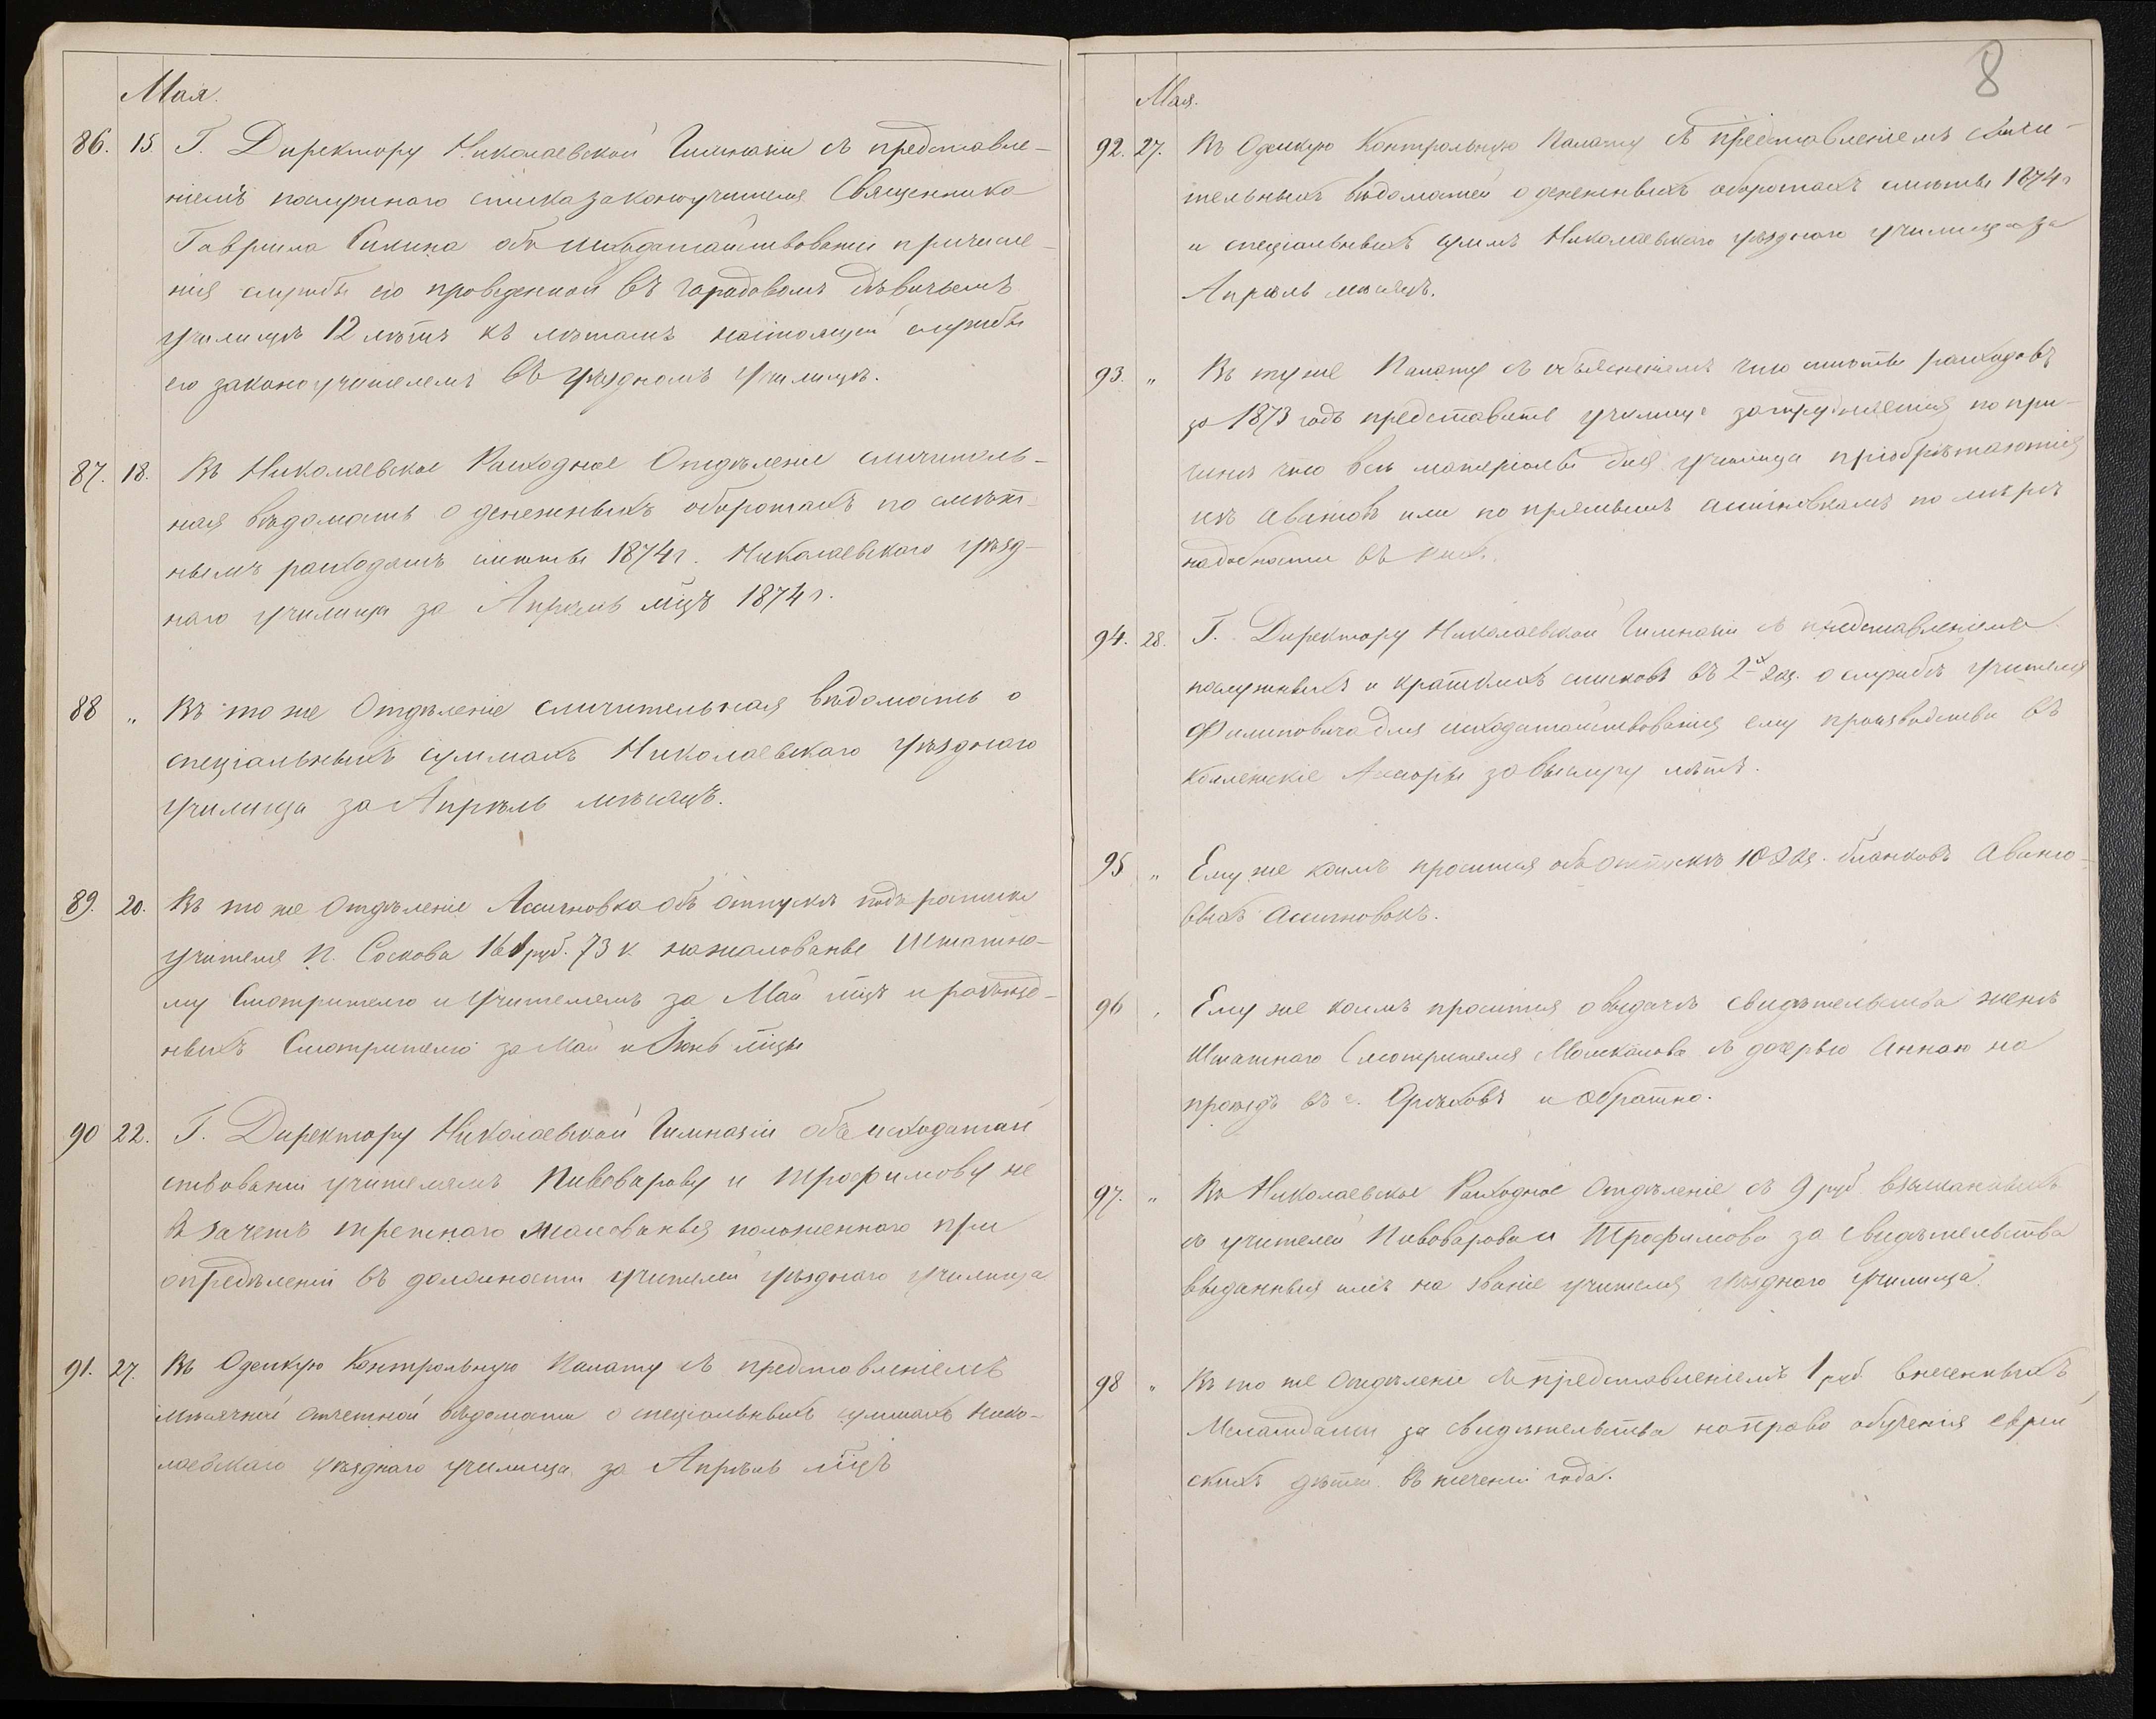 Мая.
86. 15 Г. Директору Николаевской Гимназіи съ представле-
ніемъ послужнаго списка законоучителя Священника
Гавріила Силина объ исходатайствованіи причисле-
нія службы его проведенной въ городовомъ дѣвичьемъ
училищѣ 12 лѣтъ къ лѣтамъ настоящей службы
его законоучителемъ въ уѣздномъ училищѣ.
87. 18. Въ Николаевское Расходное Отдѣленіе сличитель-
ная вѣдомость о денежныхъ оборотахъ по смѣт-
нымъ расходамъ смѣты 1874 г. Николаевскаго уѣзд-
наго училища за Апрѣль мцъ 1874 г.
88 „ Въ то же Отдѣленіе сличительная вѣдомость о
спеціальныхъ суммахъ Николаевскаго уѣзднаго
училища за Апрѣль мѣсяцъ.
89. 20. Въ то же Отдѣленіе Ассигновка объ отпускѣ подъ росписку
учителя П. Соскова 161 руб. 73 к. на жалованье Штатно-
му Смотрителю и Учителямъ за Май мцъ и разъѣзд-
ныхъ Смотрителю за Май и Іюнь мцы
90 22. Г. Директору Николаевской Гимназіи объ исходатай
ствованіи учителямъ Пивоварову и Трофимову не
въ зачетъ третнаго жалованья положеннаго при
опредѣленіи въ должности учителей уѣзднаго училища
91. 27. Въ Одесскую Контрольную Палату съ представленіемъ
мѣсячной отчетной вѣдомости о спеціальныхъ суммахъ Нико-
лаевскаго уѣзднаго училища за Апрѣль мцъ
8
Мая.
92. 27. Въ Одесскую Контрольную Палату съ представленіемъ сличи-
тельныхъ вѣдомостей о денежныхъ оборотахъ смѣты 1874 г
и спеціальныхъ суммъ Николаевскаго уѣзднаго училища за
Апрѣль мѣсяцъ.
93. „ Въ ту же Палату съ объясненіемъ что смѣты расходовъ
за 1873 годъ представить училище затрудняется по при-
чинѣ что всѣ матеріалы для училища пріобрѣтаются
изъ авансовъ или по прямымъ ассигновкамъ по мѣрѣ
надобности въ нихъ.
94. 28. Г. Директору Николаевской Гимназіи съ представленіемъ
послужныхъ и краткихъ списковъ въ 2-хъ экз. о службѣ учителя
Филиповича для исходатайствованія ему производства въ
Коллежскіе Ассесоры за выслугу лѣтъ.
95 „ Ему же коимъ просится объ отпускѣ 10 экз. бланковъ Авансо-
выхъ Ассигновокъ.
96 „ Ему же коимъ просится о выдачѣ свидѣтельства женѣ
Штатнаго Смотрителя съ дочерью Анною на
проѣздъ въ г. Орѣховъ и обратно.
97. „ Въ Николаевское Расходное Отдѣленіе съ 9 руб взысканныхъ
съ учителей Пивоварова и Трофимова за свидѣтельства
выданныя имъ на званіе учителя уѣзднаго училища.
98 „ Въ то же Отдѣленіе съ представленіемъ 1 руб внесенныхъ
Меламдами за свидѣтельства на право обученія еврей
скихъ дѣтей въ теченіи года.